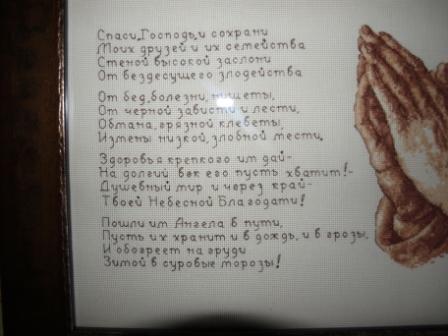 Спаси, Господь, и сохрани
Моих друзей и их семейства
Стеной высокой заслони
От вездесущего злодейства
От бед, болезни, нищеты,
От черной зависти и лести,
Обмана, грязной клеветы,
Измены низкой, злобной мести.
Здоровья крепкого им дай-
На долгий век его пусть хватит!-
Душевный мир и через край-
Твоей Небесной Благодати!
Пошли им Ангела в пути,
Пусть их хранит и в дождь, и в грозы,
И обогреет на груди
Зимой в суровые морозы!